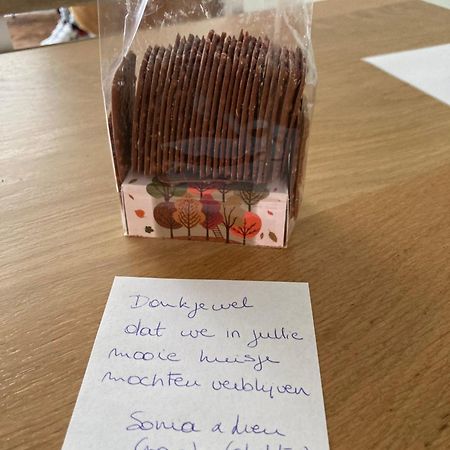 Dankjewel
dat we in jullie
mooie huisje
mochten verblijven
Sonia &